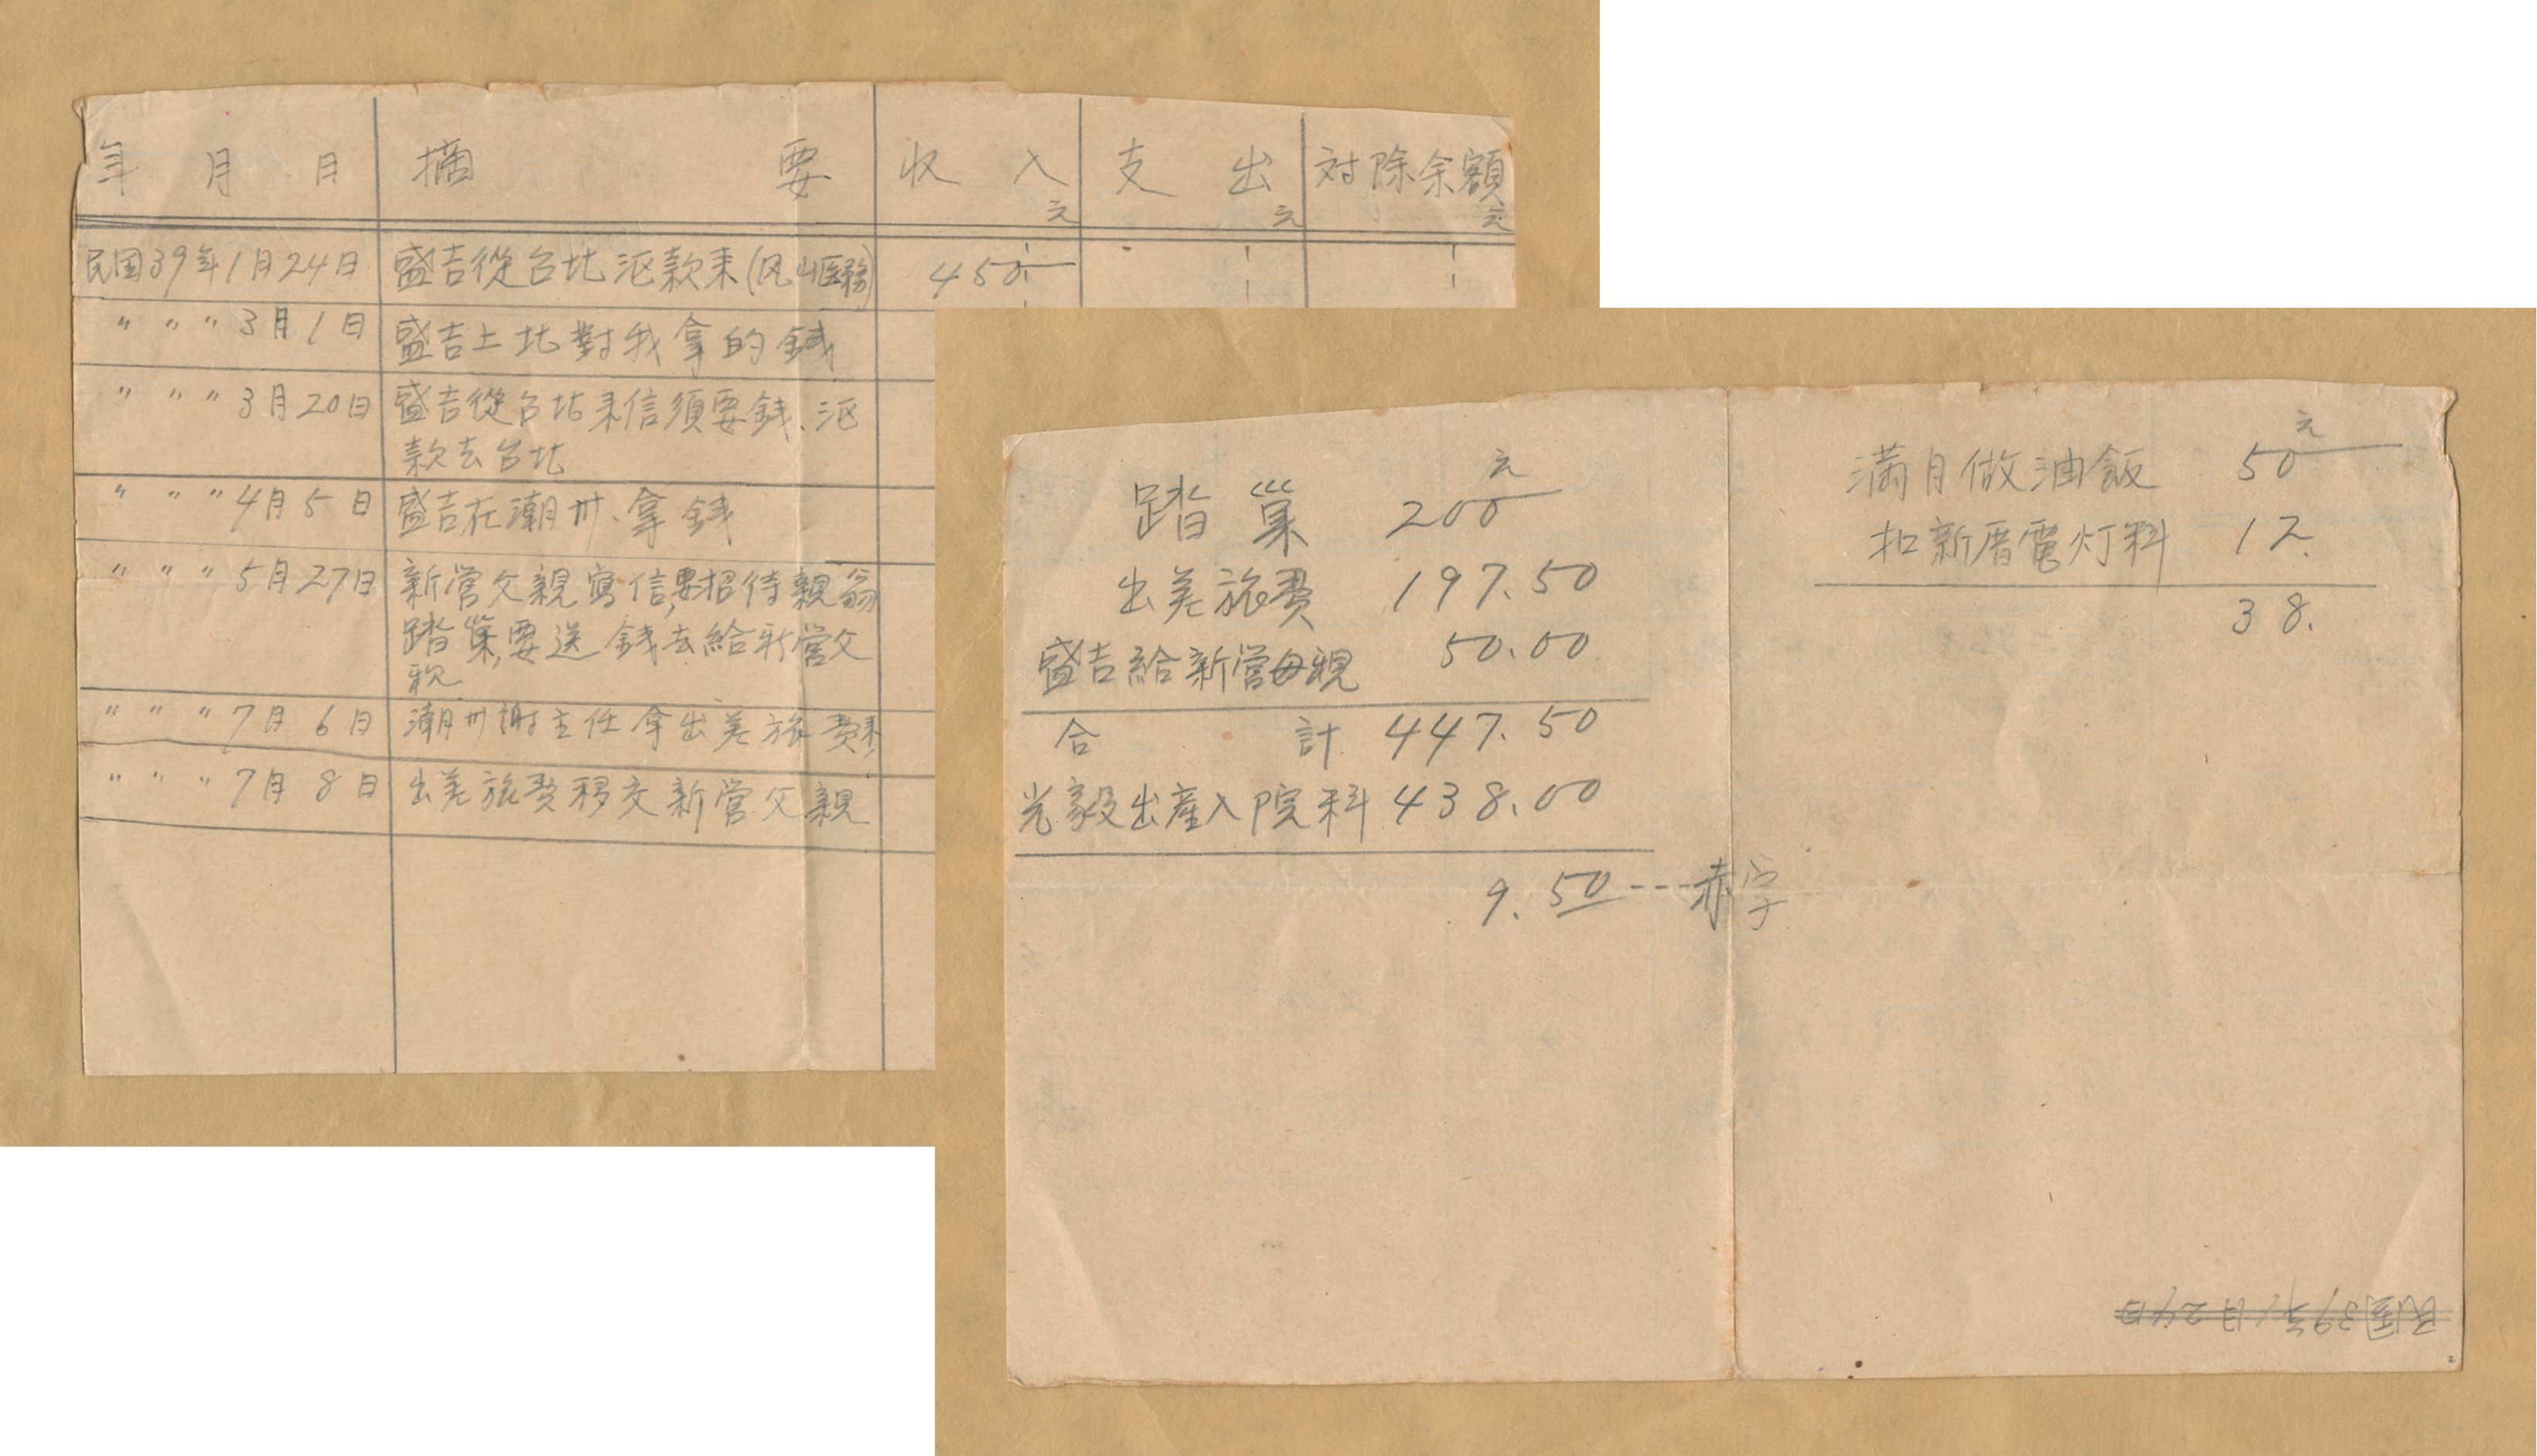 年 月 日 摘 要 收 入 支 出 対除余額
元 元 元
民国39年1月24日 盛吉從台北汇款来(风山医務) 450
〃 〃 〃 3月1日 盛吉上北對我拿的錢
〃 〃 〃 3月20日 盛吉從台北来信須要錢、汇
款去台北
〃 〃 〃 4月5日 盛吉在潮卅、拿錢
〃 〃 〃 5月27日 新营父親寫信,要招待親翁
踏巢,要送錢去給新営父
親
〃 〃 〃 7月6日 潮卅謝主任拿出差旅費来
〃 〃 〃 7月8日 出差旅費移交新営父親
元
踏巢 200
出差旅費 197.50
盛吉給新营母親 50.00
合 計 447.50
光毅出産入院料 438.00
9.50---赤字
元
満月做油飯 50
扣新厝電灯料 12.
38.
民国39年1月24日